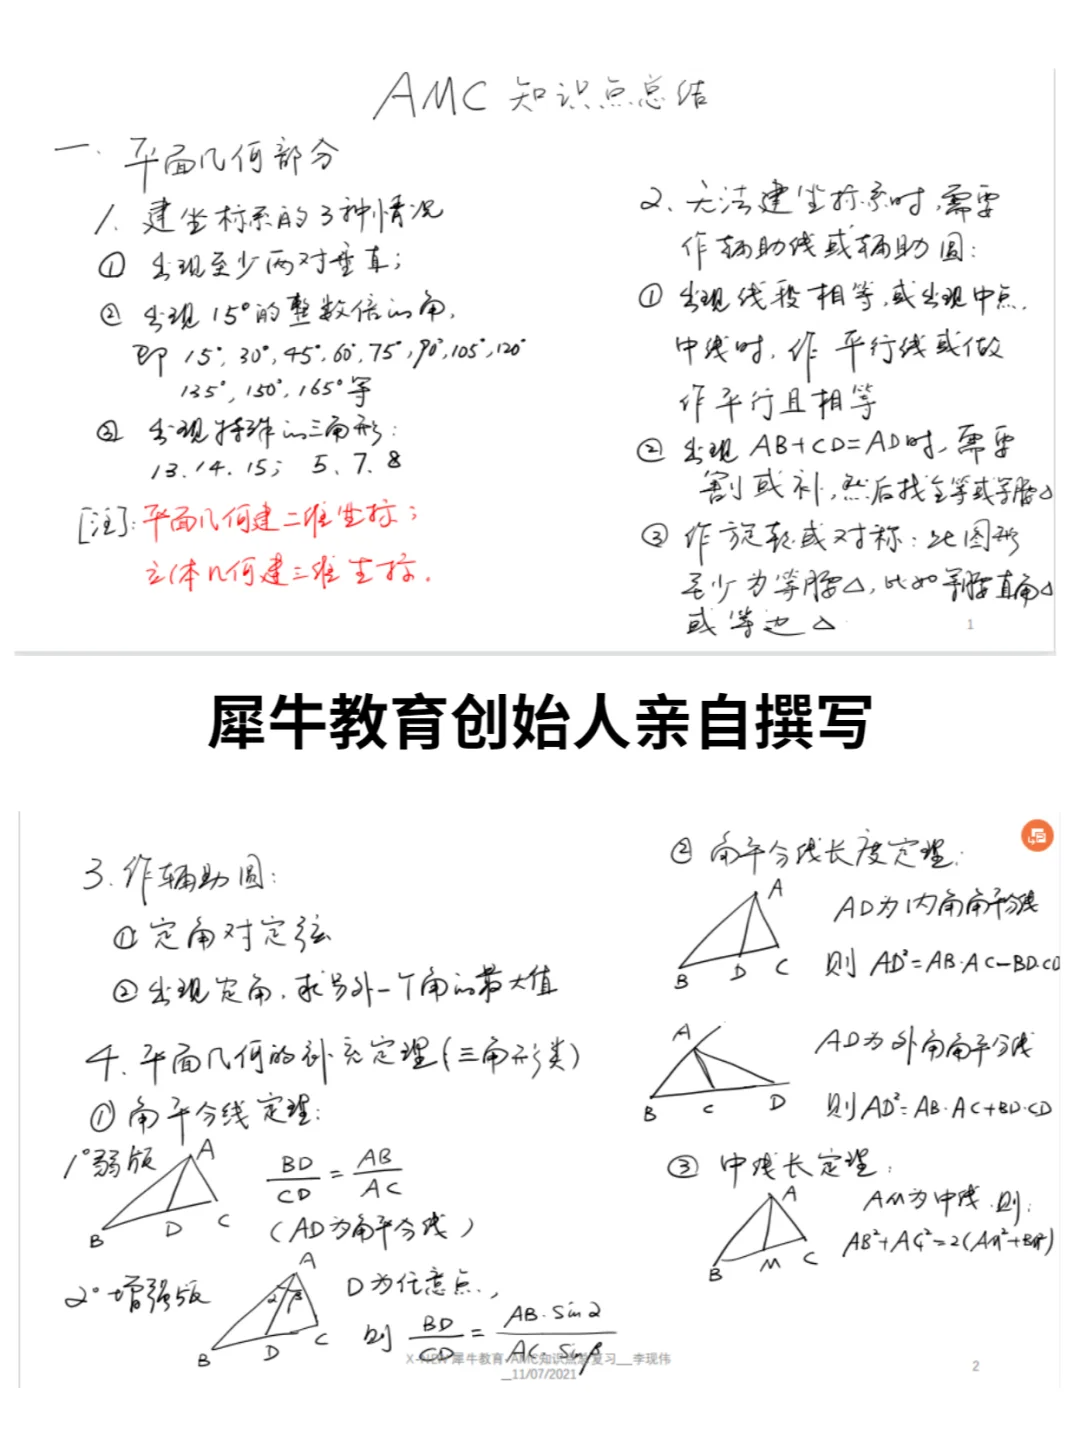 AMC 知识点总结
一. 平面几何部分
1. 建坐标系的3种情况
① 出现至少两对垂直;
② 出现15°的整数倍的角,
即 15°, 30°, 45°, 60°, 75°, 90°, 105°, 120°
135°, 150°, 165°等
③ 出现特殊的三角形:
13. 14. 15; 5. 7. 8
[注]: 平面几何建二维坐标;
立体几何建三维坐标.
2. 无法建坐标系时,需要
作辅助线或辅助圆:
① 出现线段相等,或出现中点.
中线时, 作 平行线或做
作平行且相等
② 出现 AB+CD=AD时, 需要
割或补, 然后找全等或等腰△
③ 作旋转或对称: 此图形
至少为等腰△, 比如等腰直角△
或等边△
1
犀牛教育创始人亲自撰写
3. 作辅助圆:
① 定角对定弦
② 出现定角, 求另外一个角的最大值
4. 平面几何的补充定理(三角形类)
① 角平分线定理:
1°弱版
A
B D C
BD/CD = AB/AC
(AD为角平分线)
2°增强版
A
α β
B D C
D为任意点,
则 BD/CD = AB·Sinα/AC·Sinβ
② 角平分线长度定理:
A
B D C
AD为内角角平分线
则 AD²=AB·AC-BD·CD
A
B C D
AD为外角角平分线
则AD²=AB·AC+BD·CD
③ 中线长定理:
A
B M C
AM为中线.则:
AB²+AC²=2(AM²+BM²)
犀牛教育 AMC知识点总复习__李现伟
__11/07/2021
2